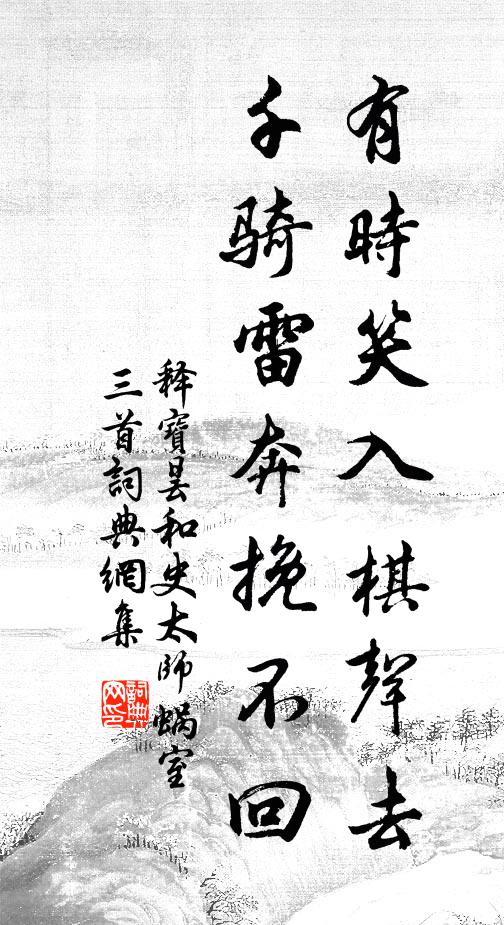 有時笑入棋聲去
千騎雷奔挽不回
释寶曇和史太師蝸室
三首詞典網集
詞典網印